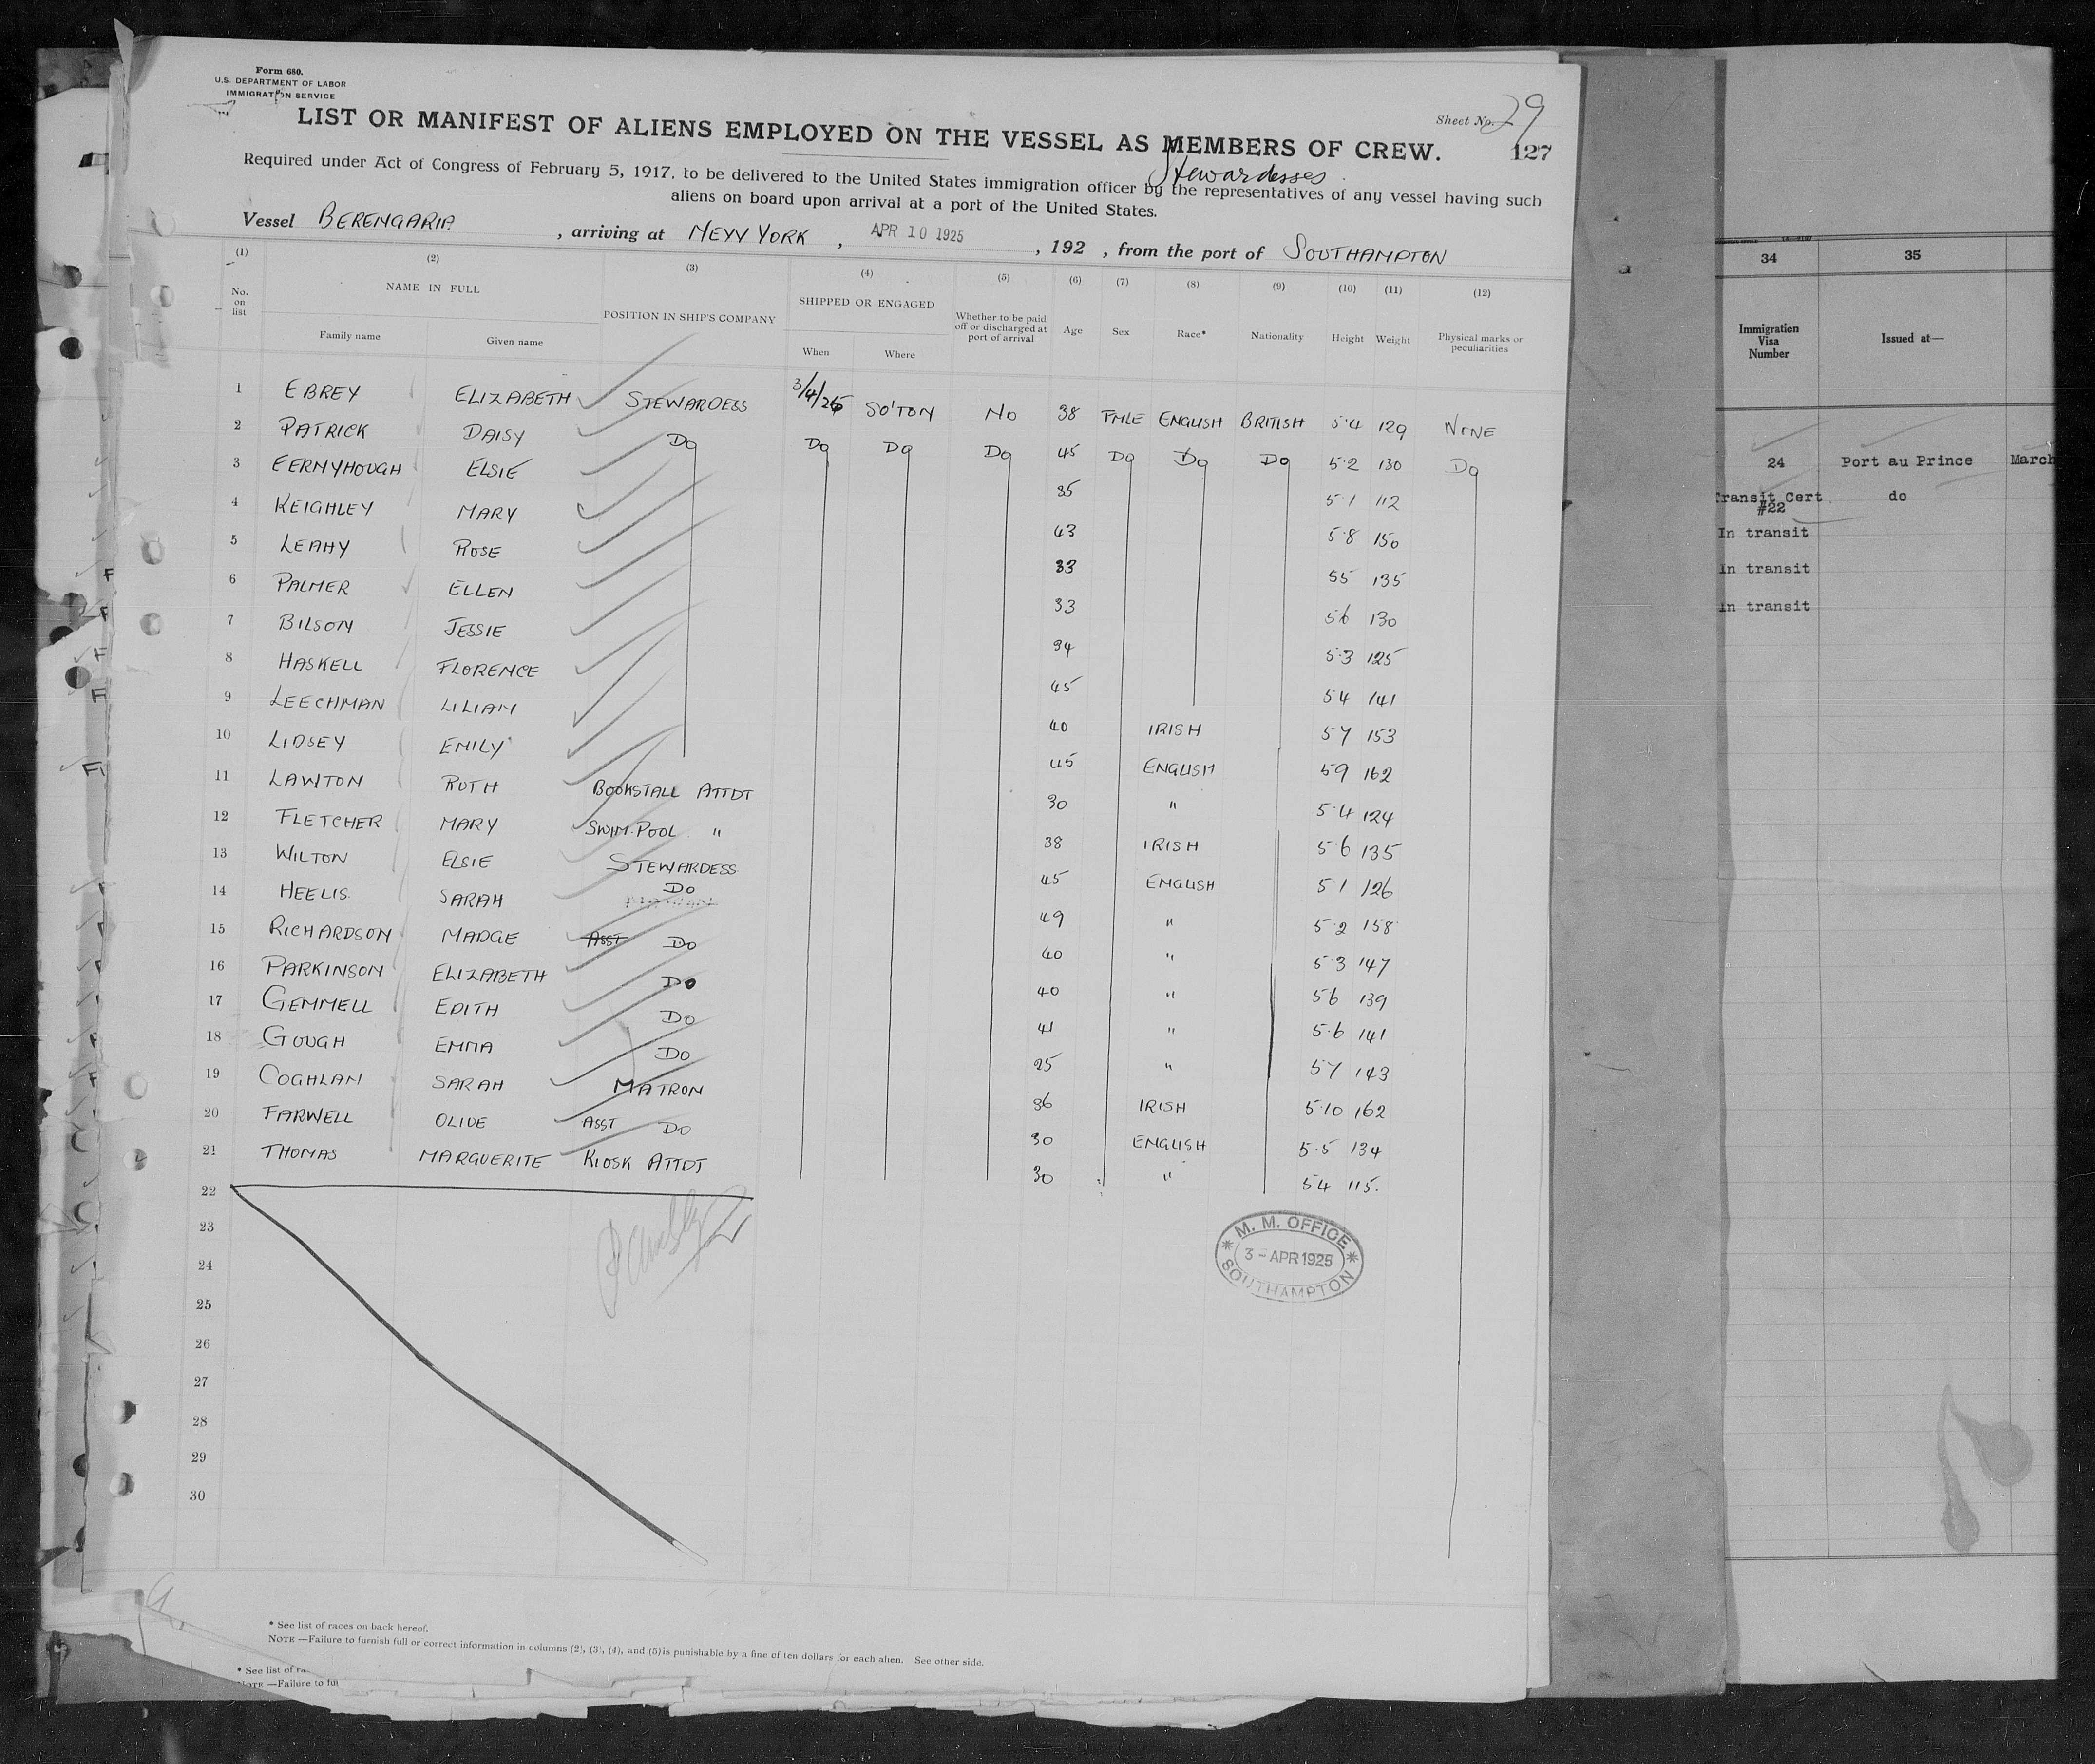 Form 680.
U.S. DEPARTMENT OF LABOR
IMMIGRATION SERVICE
Sheet No. 29
LIST OR MANIFEST OF ALIENS EMPLOYED ON THE VESSEL AS MEMBERS OF CREW.
127
Stewardesses
Required under Act of Congress of February 5, 1917, to be delivered to the United States immigration officer by the representatives of any vessel having such
aliens on board upon arrival at a port of the United States.
Vessel BERENGARIA , arriving at NEW YORK , APR 10 1925 , 192 , from the port of SOUTHAMPTON
(1) (2) (3) (4) (5) (6) (7) (8) (9) (10) (11) (12)
No. on list NAME IN FULL POSITION IN SHIP'S COMPANY SHIPPED OR ENGAGED Whether to be paid off or discharged at port of arrival Age Sex Race* Nationality Height Weight Physical marks or peculiarities
Family name Given name When Where
1 EBREY ELIZABETH STEWARDESS 3/4/25 SO'TON No 38 FMLE ENGLISH BRITISH 5·4 129 NONE
2 PATRICK DAISY Do Do Do Do 45 Do Do Do 5·2 130 Do
3 EERNYHOUGH ELSIE 35 5·1 112
4 KEIGHLEY MARY 43 5·8 150
5 LEAHY ROSE 33 55 135
6 PALMER ELLEN 33 56 130
7 BILSON JESSIE 34 5·3 125
8 HASKELL FLORENCE 45 54 141
9 LEECHMAN LILIAN 40 IRISH 57 153
10 LIDSEY EMILY 45 ENGLISH 59 162
11 LAWTON RUTH BOOKSTALL ATTDT 30 " 5·4 124
12 FLETCHER MARY SWIM.POOL " 38 IRISH 5·6 135
13 WILTON ELSIE STEWARDESS 45 ENGLISH 5·1 126
14 HEELIS SARAH Do 49 " 5·2 158
15 RICHARDSON MADGE ASST Do 40 " 5·3 147
16 PARKINSON ELIZABETH Do 40 " 56 139
17 GEMMELL EDITH Do 41 " 5·6 141
18 GOUGH EMMA Do 25 " 57 143
19 COGHLAN SARAH MATRON 36 IRISH 5·10 162
20 FARWELL OLIVE ASST Do 30 ENGLISH 5·5 134
21 THOMAS MARGUERITE KIOSK ATTDT 30 " 54 115.
22
23
24
25
26
27
28
29
30
M. M. OFFICE
3 - APR 1925
SOUTHAMPTON
* See list of races on back hereof.
NOTE —Failure to furnish full or correct information in columns (2), (3), (4), and (5) is punishable by a fine of ten dollars for each alien. See other side.
* See list of ra
NOTE —Failure to fur
34 35
Immigration Visa Number Issued at—
24 Port au Prince March
Transit Cert do
#22
In transit
In transit
In transit